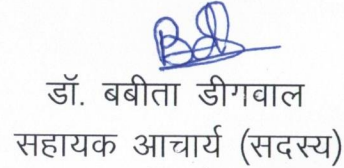 डॉ. बबीता डीगवाल
सहायक आचार्य (सदस्य)